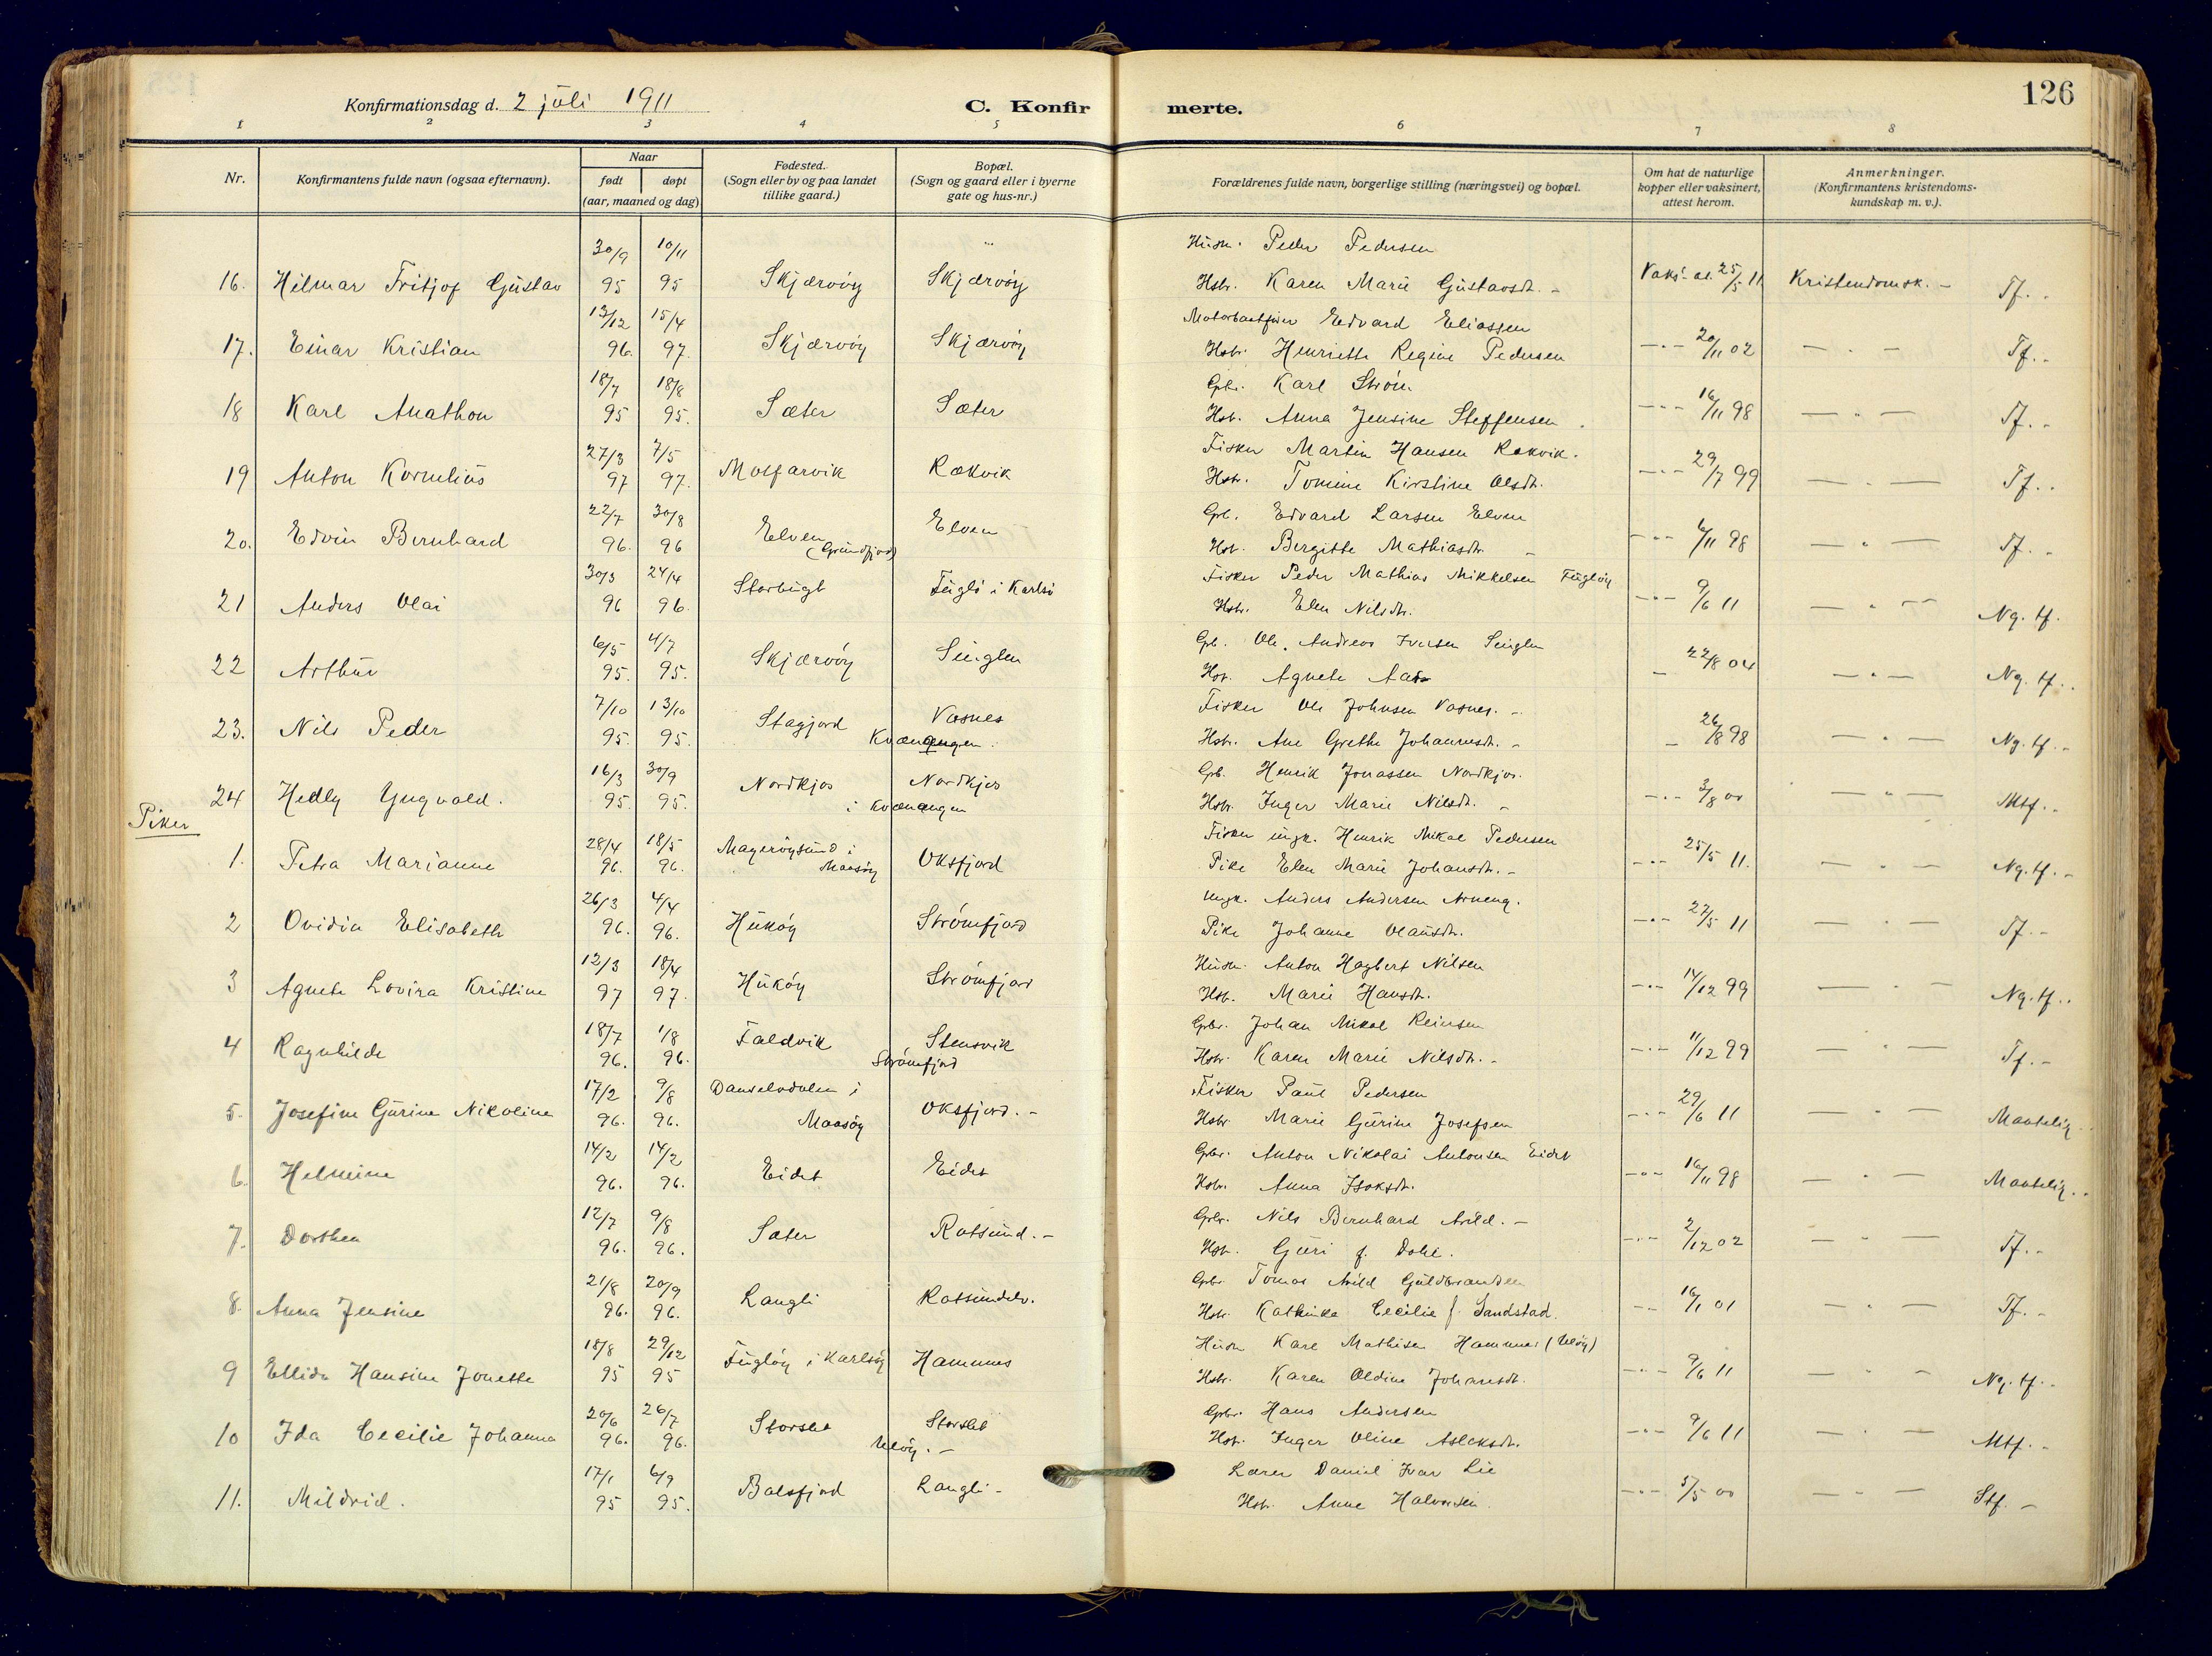 126
Konfirmationsdag d. 2 juli 1911
C. Konfirmerte.
1 2 3 4 5 6 7 8
Nr.
Konfirmantens fulde navn (ogsaa efternavn).
Naar
født døpt
(aar, maaned og dag)
Fødested.
(Sogn eller by og paa landet
tillike gaard.)
Bopæl.
(Sogn og gaard eller i byerne
gate og hus-nr.)
Forældrenes fulde navn, borgerlige stilling (næringsvei) og bopæl.
Om hat de naturlige
kopper eller vaksinert,
attest herom.
Anmerkninger.
(Konfirmantens kristendoms-
kundskap m. v.).
30/9 10/11 Husm. Peder Pedersen
16. Hilmar Fritjof Gustav 95 95 Skjærvöy Skjærvöy Hstr. Karen Marie Gustavsdt. - Vaks. at. 25/5 11 Kristendomsk. - Tf. -
13/12 15/4 Edvard Eliassen
17. Einar Kristian 96. 97. Skjærvöy Skjærvöy Hstr. Henriette Regine Pedersen -"- 20/11 02 - " - Tf. -
18/7 18/8 Gbr. Karl Ström
18 Karl Anathon 95 95. Sæter Sæter Hst. Anna Jensine Steffensen. -"- 16/11 98 - " - Tf. -
27/3 7/5 Fisker Martin Hansen Rækvik.
19 Anton Kornelius 97 97. Molfarvik Rækvik Hstr. Tomine Kirstine Olsdt. -"- 29/7 99 - " - Tf. -
22/7 30/8 Gb. Edvard Larsen Elven
20. Edvin Bernhard 96. 96 Elven (Grundfjord) Elven Hst. Bergitte Mathiasdt. - -"- 6/11 98 - " - Tf. -
30/3 24/4 Fisker Peder Mathias Mikkelsen Fuglöy
21 Anders Olai 96 96. Storbugt Fuglö i Karlsö Hstr. Elen Nilsdt. -"- 9/6 11 - " - Ng. tf.
6/5 4/7 Gb. Ole Andreas Iversen Singlen
22 Arthur 95. 95. Skjærvöy Singlen Hst. Agnete - 22/8 04 - " - Ng. tf.
7/10 13/10 Fisker Ole Johnsen Vasnes. -
23. Nils Peder 95. 95. Stagjord Vasnes Kvænangen. Hstr. Ane Grethe Johannesdt. - - 26/8 98 - " - Ng. tf. -
16/3 30/9 Gb. Henrik Jonassen Nordkjos.
24 Hedly Yngvald. 95. 95. Nordkjos Nordkjos i Kvænangen Hstr. Inger Marie Nilsdt. - -"- 3/8 00 - " - Mtf. -
Piker
28/4 18/5 Fisker ungk. Henrik Mikal Pedersen
1. Petra Marianne 96. 96. Mageröysund i Maasöy Oksfjord Pike Elen Marie Johansdt. - -"- 25/5 11. - " - Ng. tf. -
26/3 4/4 Ungk. Anders Andersen
2 Ovidia Elisabeth 96. 96. Huköy Strömfjord Pike Johanne Olausdt. -"- 27/5 11 - " - Tf. -
12/3 18/4 Husm. Anton Hagbert Nilsen
3 Agnete Lovisa Kristine 97 97. Huköy Strömfjord Hst. Marie Hansdt. -"- 14/12 99 - " - Ng. tf.
18/7 1/8 Gbr. Johan Mikal Reiersen
4 Ragnhilda 96. 96. Faldvik Stensvik Strömfjord Hstr. Karen Marie Nilsdt. - -"- 11/12 99 - " - Tf. -
17/2 9/8 Fisker Paul Pedersen
5. Josefine Gurine Nikoline 96. 96. Danselvdalen i Maasöy Oksfjord. - Hstr. Marie Gurine Josefsen -"- 29/6 11 - " - Maatelig.
14/2 14/2 Gbr. Anton Nikolai Antonsen Eidet
6. Helmine 96. 96. Eidet Eidet Hstr. Anna Isaksdt. -"- 16/11 98 - " - Maatelig.
12/7 9/8 Gbr. Nils Bernhard Arild. -
7. Dorthea 96. 96. Sæter Rotsund. - Hst. Guri f. Dohl. -"- 2/12 02 - " - Tf. -
21/8 20/9 Gbr. Tomas Arild Guldbrandsen
8. Anna Jensine 96. 96. Langli Rotsundelv. Hst. Kathinka Cecilie f. Sandstad. -"- 16/1 01 - " - Tf. -
18/8 29/12 Husm Karl Mathisen Hamnes (Ulöy)
9 Ellida Hansine Jonette 95 95 Fuglöy i Karlsöy Hamnes Hstr. Karen Oldine Johansdt. -"- 9/6 11 - " - Ng. tf. -
20/6 26/7 Gbr. Hans Andersen
10 Ida Cecilie Johanna 96. 96. Storslet Storslet Ulöy. - Hst. Inger Oline Aslaksdt. -"- 9/6 11 - " - Mtf. -
17/1 6/9 Lærer Daniel Ivar Lie
11. Mildrid. 95 95. Balsfjord Langli - Hstr. Anne Halvorsen. -"- 5/5 00 - " - Stf. -